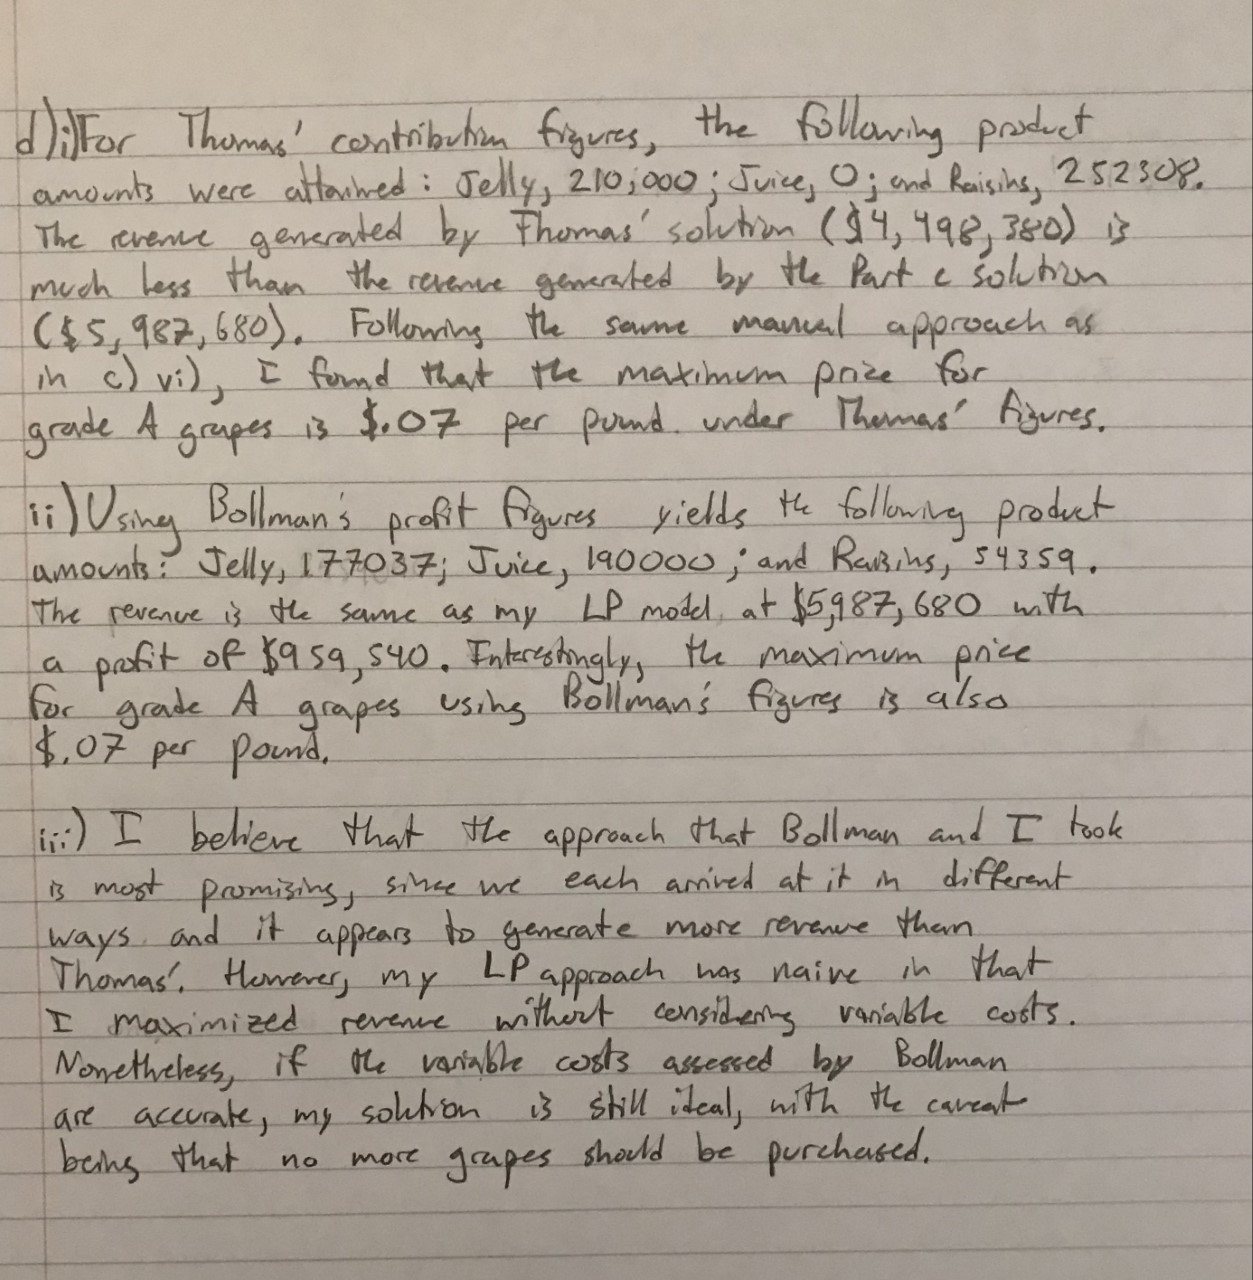 d)i)For Thomas' contribution figures, the following product
amounts were attained: Jelly, 210,000; Juice, 0; and Raisins, 252308.
The revenue generated by Thomas' solution ($4,498,380) is
much less than the revenue generated by the Part c solution
($5,987,680). Following the same manual approach as
in c) vi), I found that the maximum price for
grade A grapes is $.07 per pound under Thomas' figures.
ii) Using Bollman's profit figures yields the following product
amounts: Jelly, 177037; Juice, 190000; and Raisins, 54359.
The revenue is the same as my LP model at $5,987,680 with
a profit of $959,540. Interestingly, the maximum price
for grade A grapes using Bollman's figures is also
$.07 per pound.
iii) I believe that the approach that Bollman and I took
is most promising, since we each arrived at it in different
ways and it appears to generate more revenue than
Thomas'. However, my LP approach was naive in that
I maximized revenue without considering variable costs.
Nonetheless, if the variable costs assessed by Bollman
are accurate, my solution is still ideal, with the caveat
being that no more grapes should be purchased.